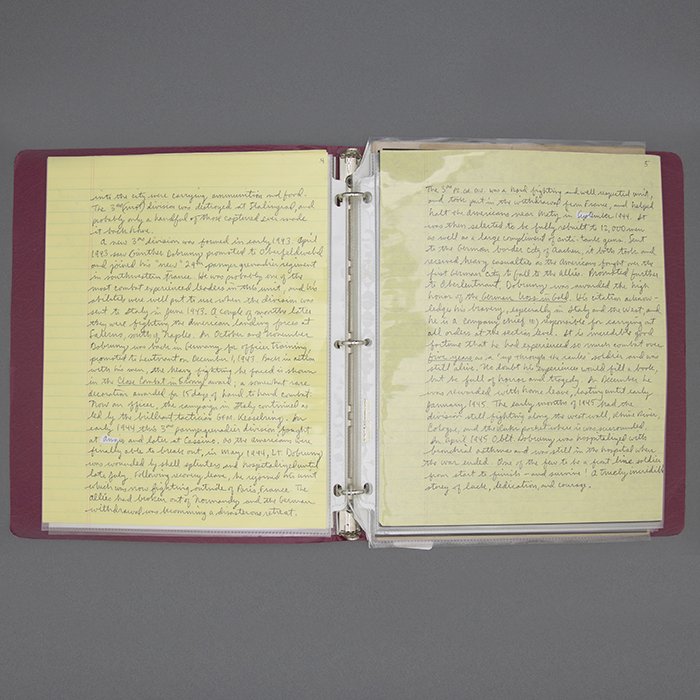 4
into the city were carrying ammunition and food.
The 3rd (first) division was destroyed at Stalingrad, and
probably only a handful of those captured ever made
it back home.
A new 3rd division was formed in early 1943. April
1943 saw Günther Dobrung promoted to Oberfeldwebel
and joined his "new" 29th panzer grenadier regiment
in southwestern France. He was probably one of the
most combat experienced leaders in this unit, and his
abilities were well put to use when the division was
sent to Italy in June 1943. A couple of months later
they were fighting the American landing forces at
Salerno, south of Naples. In October and November
Dobrung was back in Germany for officer training,
promoted to Lieutnant on December 1, 1943. Back in action
with his men, the heavy fighting he faced is shown
in the Close Combat in Silver award; a somewhat rare
decoration awarded for 15 days of hand to hand combat.
Now an officer, the campaign in Italy continued as
led by the brilliant tactician Gen. Kesselring. In
early 1944 this 3rd panzergrenadier division fought
at Anzio and later at Cassino. As the Americans were
finally able to break out, in May 1944, Lt. Dobrung
was wounded by shell splinters and hospitalized until
late July. Following recovery leave, he rejoined his unit
which was now fighting outside of Paris, France. The
Allies had broken out of Normandy and the German
withdrawal was becomming a disasterous retreat.
5
The 3rd Pz. Gd. Div. was a hard fighting and well respected unit,
and took part in the withdrawal from France, and helped
halt the Americans near Metz, in September 1944. It
was then selected to be fully rebuilt to 12,000 men
as well as a large compliment of anti-tank guns. Sent
to the German border city of Aachen, it both took and
received heavy casualties as the Americans fought for the
first German city to fall to the Allies. Promoted further
to Oberleutnant, Dobrung was awarded the high
honor of the German Cross in Gold. His citation acknow-
ledges his bravery, especially in Italy and the West, and
he is a company chief
all orders at the section level. It is incredible good
fortune that he had experienced so much combat over
five years as a "up through the ranks" soldier and was
still alive. No doubt his experience would fill a book,
but be full of horror and tragedy. In December he
was rewarded with home leave, lasting until early
January, 1945. The early months of 1945 had the
division still fighting along the west wall, Rhine River,
Cologne, and the Ruhr pocket where it was surrounded.
In April 1945 Oblt. Dobrung was hospitalized with
bronchial asthma and was still in the hospital when
the war ended. One of the few to be a front line soldier
from start to finish - and survive! A truely incredible
story of luck, dedication, and courage.